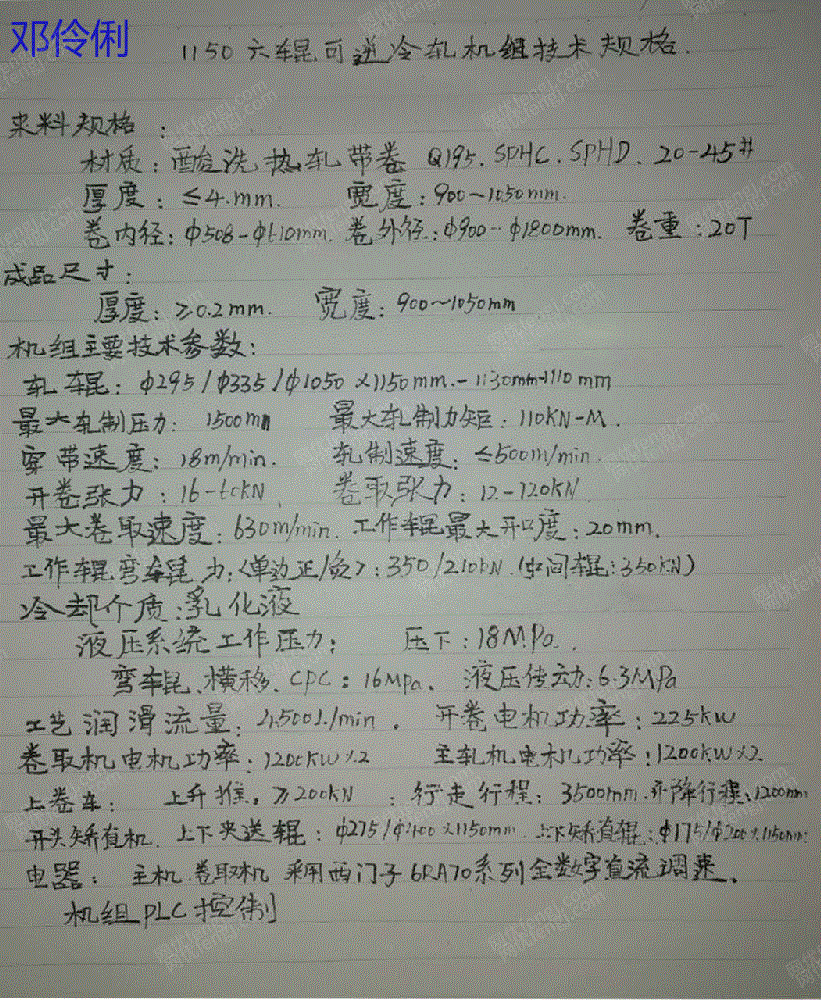 邓伶俐
1150六辊可逆冷轧机组技术规格.
来料规格:
材质:酸洗热轧带卷 Q195. SPHC. SPHD. 20-45#
厚度:≤4.mm. 宽度:900~1050mm.
卷内径:φ508-φ610mm. 卷外径:φ900--φ1800mm. 卷重:20T
成品尺寸:
厚度:≥0.2mm. 宽度:900~1050mm
机组主要技术参数:
轧辊:φ295/φ335/φ1050×1150mm.-1130mm-1110mm
最大轧制压力: 1500 最大轧制力矩:110KN-M.
穿带速度:18m/min. 轧制速度:≤500m/min.
开卷张力:16-60KN, 卷取张力:12-120KN
最大卷取速度:630m/min. 工作辊最大开口度:20mm.
工作辊弯辊力:<单边正/负>:350/210KN.(中间辊:350KN)
冷却介质:乳化液
液压系统工作压力: 压下:18MPa.
弯辊、横移、CPC:16Mpa. 液压传动:6.3MPa
工艺润滑流量:4500L/min. 开卷电机功率:225KW
卷取机电机功率:1200KW×2 主轧机电机功率:1200KW×2
上卷车: 上升推。≥200KN ;行走行程:3500mm.升降行程:1200mm
开头矫直机、上下夹送辊:φ275/φ400×1150mm.上下矫直辊:φ175/φ200×1150mm
电器:主机卷取机采用西门子6RA70系列全数字直流调速.
机组PLC控制